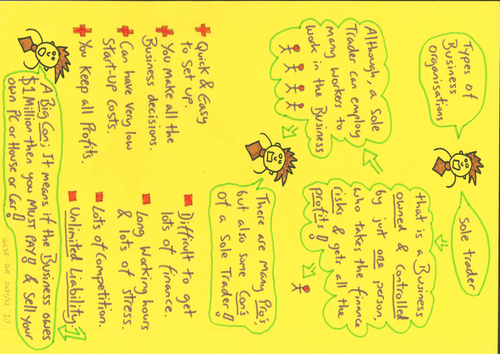 Types of
Business
organisations
Sole trader
that is a Business
owned & controlled
by just one person,
who takes the finance
risks & gets all the
profits!
Although, a Sole
Trader can employ
many workers to
work in the Business
There are many Pro's,
but also some Con's
of a Sole Trader!
Quick & Easy
to Set up.
You make all the
Business decisions.
Can have very low
Start-up costs.
You keep all Profits.
Difficult to get
lots of finance.
Long Working hours
& lots of stress.
Lots of competition.
Unlimited Liability.
A Big Con; It means if the Business owes
$1 Million then you MUST PAY!! & Sell your
own PC or House or Car!